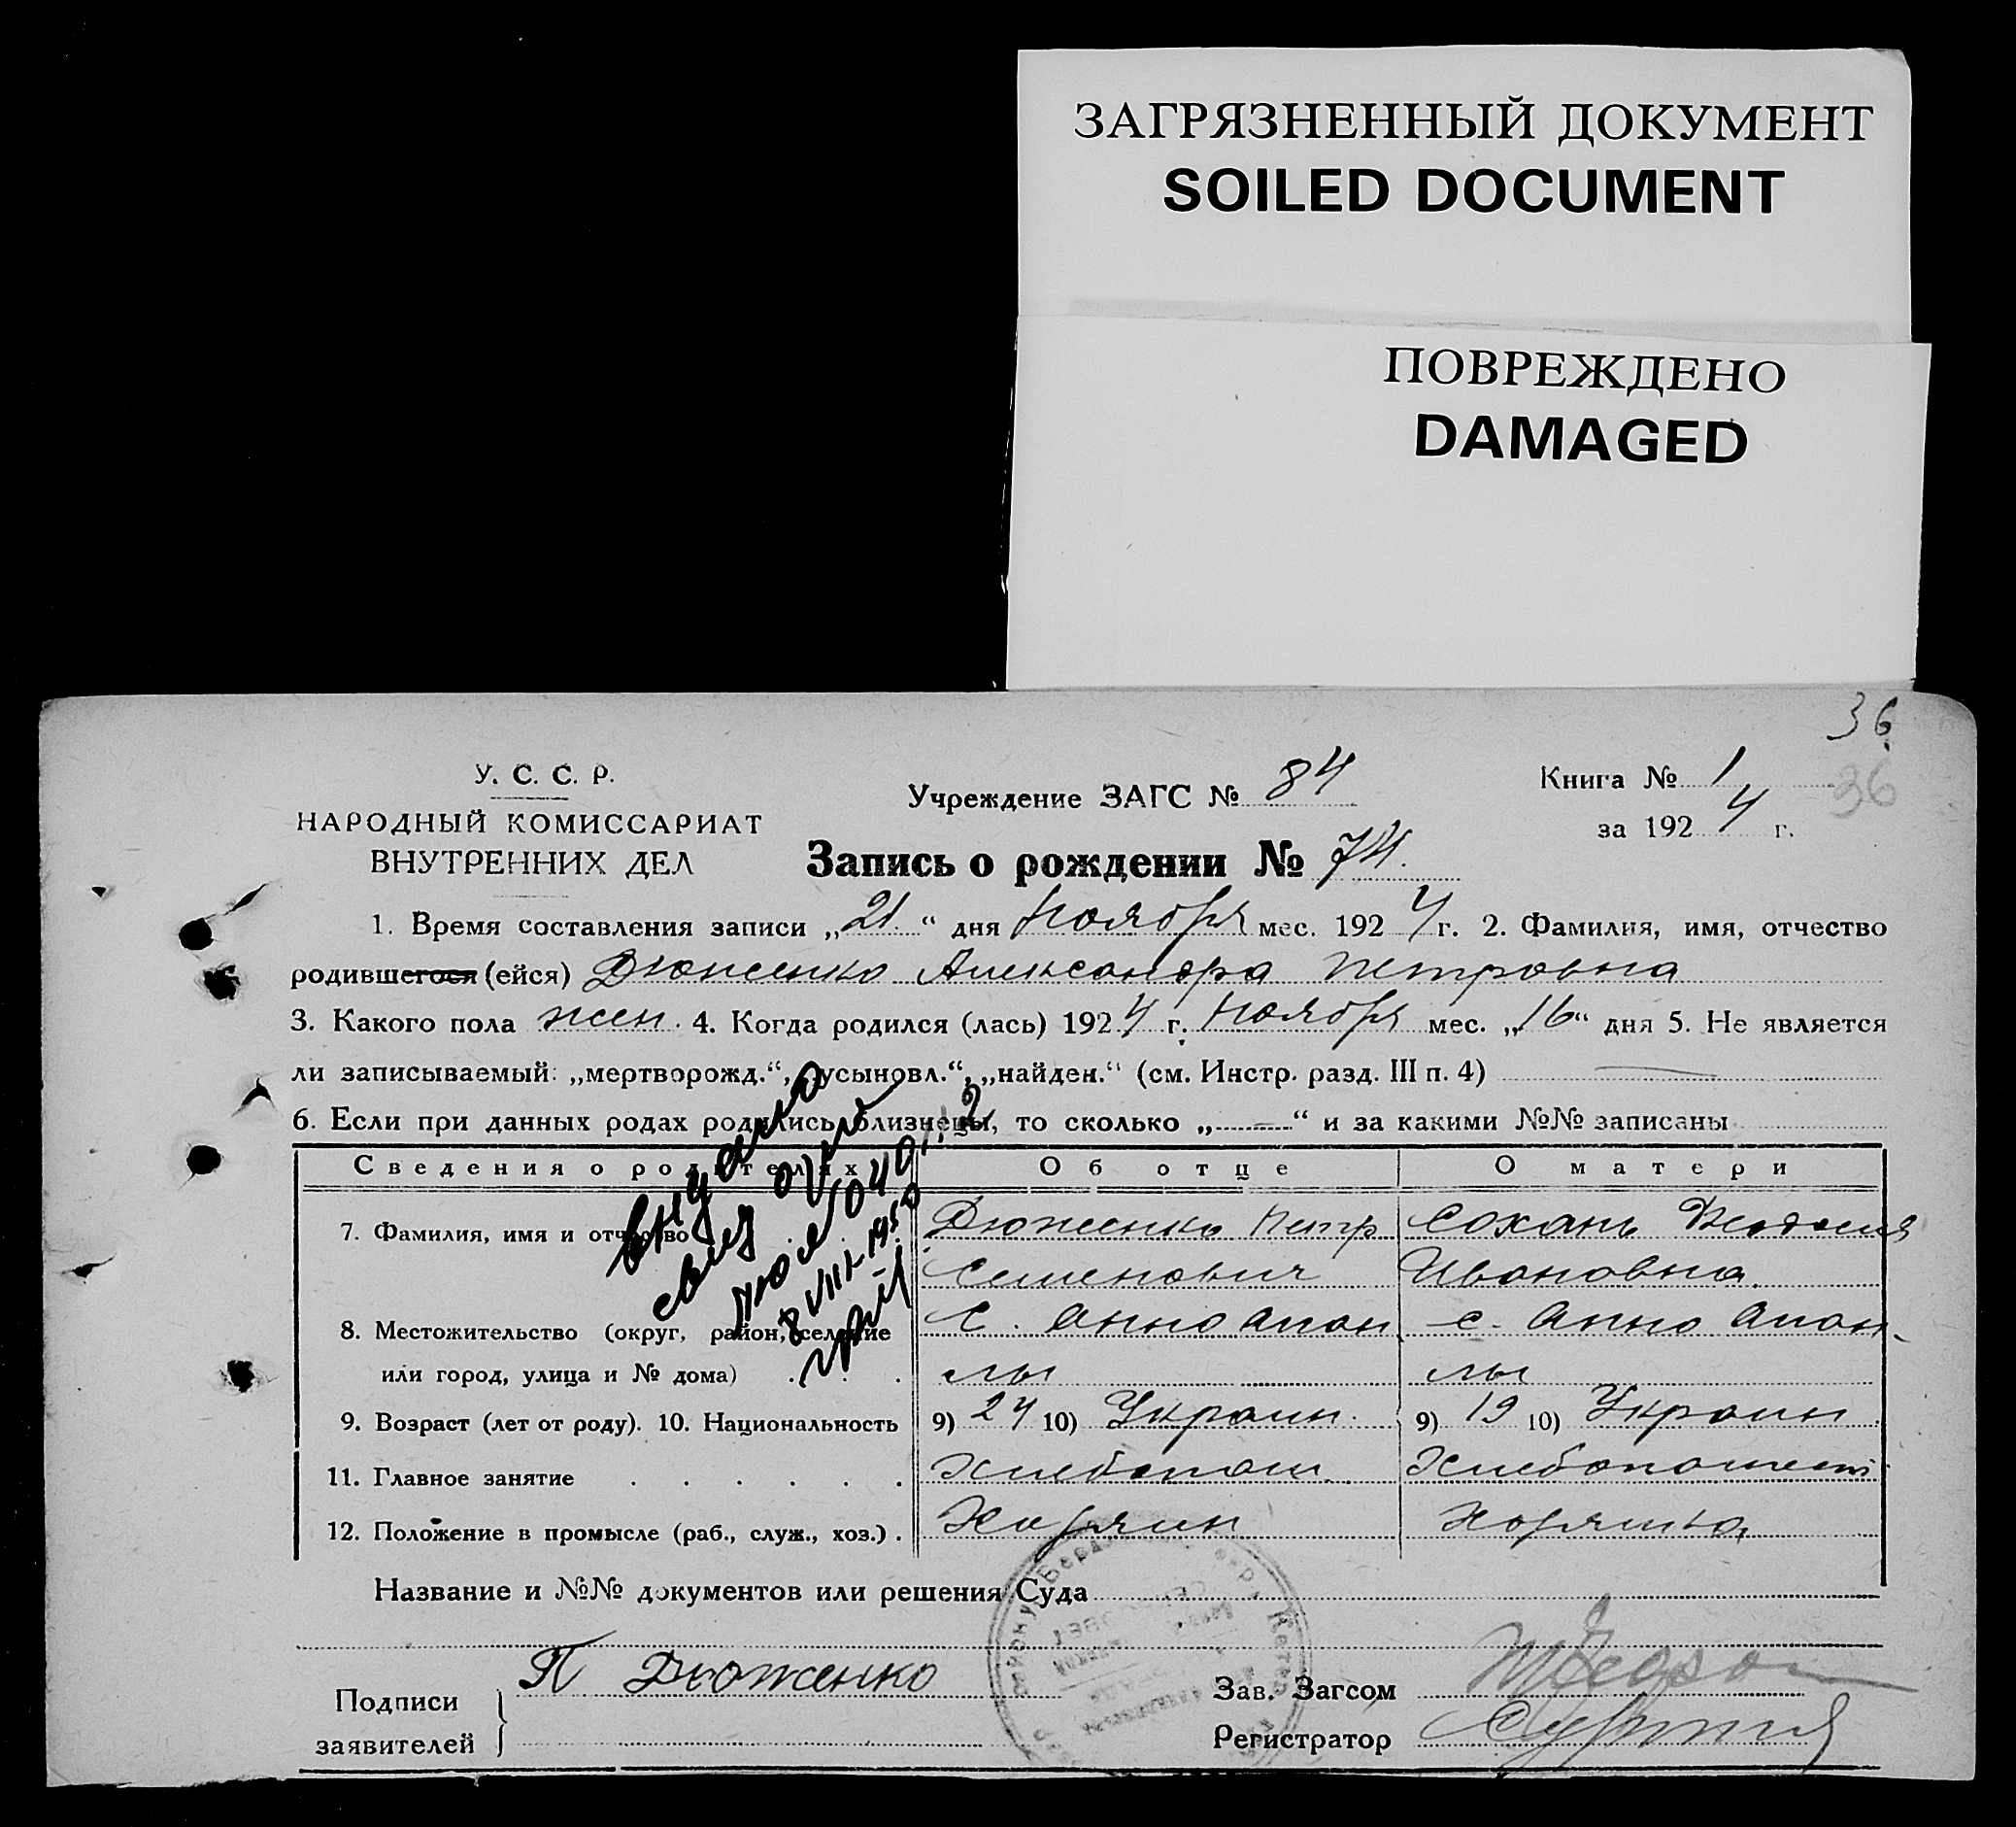 ЗАГРЯЗНЕННЫЙ ДОКУМЕНТ
SOILED DOCUMENT
ПОВРЕЖДЕНО
DAMAGED
36
36
У. С. С. Р.
НАРОДНЫЙ КОМИССАРИАТ
ВНУТРЕННИХ ДЕЛ
Учреждение ЗАГС № 84
Книга № 1
за 1924 г.
Запись о рождении № 74.
1. Время составления записи „21“ дня Ноября мес. 1924 г. 2. Фамилия, имя, отчество
родившегося (ейся) Дюженко Александра Петровна
3. Какого пола жен. 4. Когда родился (лась) 1924 г. Ноября мес. „16“ дня 5. Не является
ли записываемый: „мертворожд.“, „усыновл.“, „найден.“ (см. Инстр. разд. III п. 4) —
6. Если при данных родах родились близнецы, то сколько „—“ и за какими №№ записаны
Сведения о родителях Об отце О матери
7. Фамилия, имя и отчество Дюженко Петр Сохань
Семенович Ивановна
8. Местожительство (округ, район, селение С. Анно Апан с. Анно Апан-
или город, улица и № дома) лы лы
9. Возраст (лет от роду). 10. Национальность 9) 24 10) Украин. 9) 19 10) Украин
11. Главное занятие Хлебопаш. Хлебопашест
12. Положение в промысле (раб., служ., хоз.) Хозяин Хозяйка
выдано
8 VIII-1950
Название и №№ документов или решения Суда
Подписи
заявителей
П Дюженко
Зав. Загсом
Регистратор